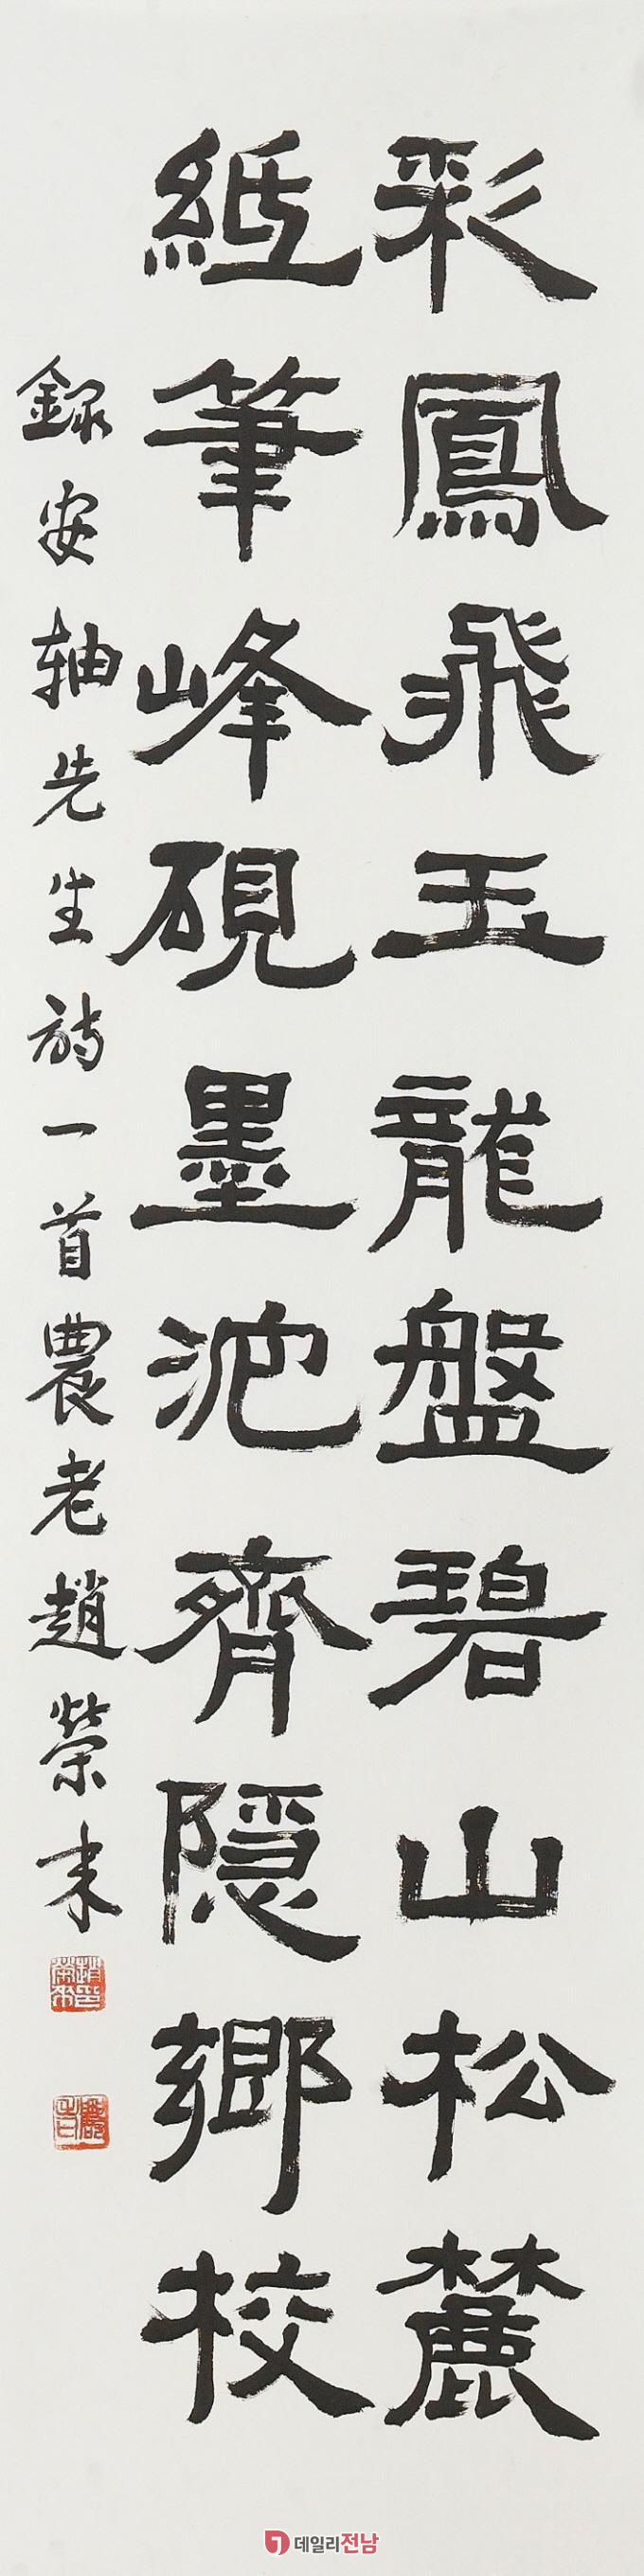 彩鳳飛玉龍盤碧山松麓
紙筆峰硯墨池齊隱鄉校
錄安軸先生詩一首農老趙榮來
데일리전남